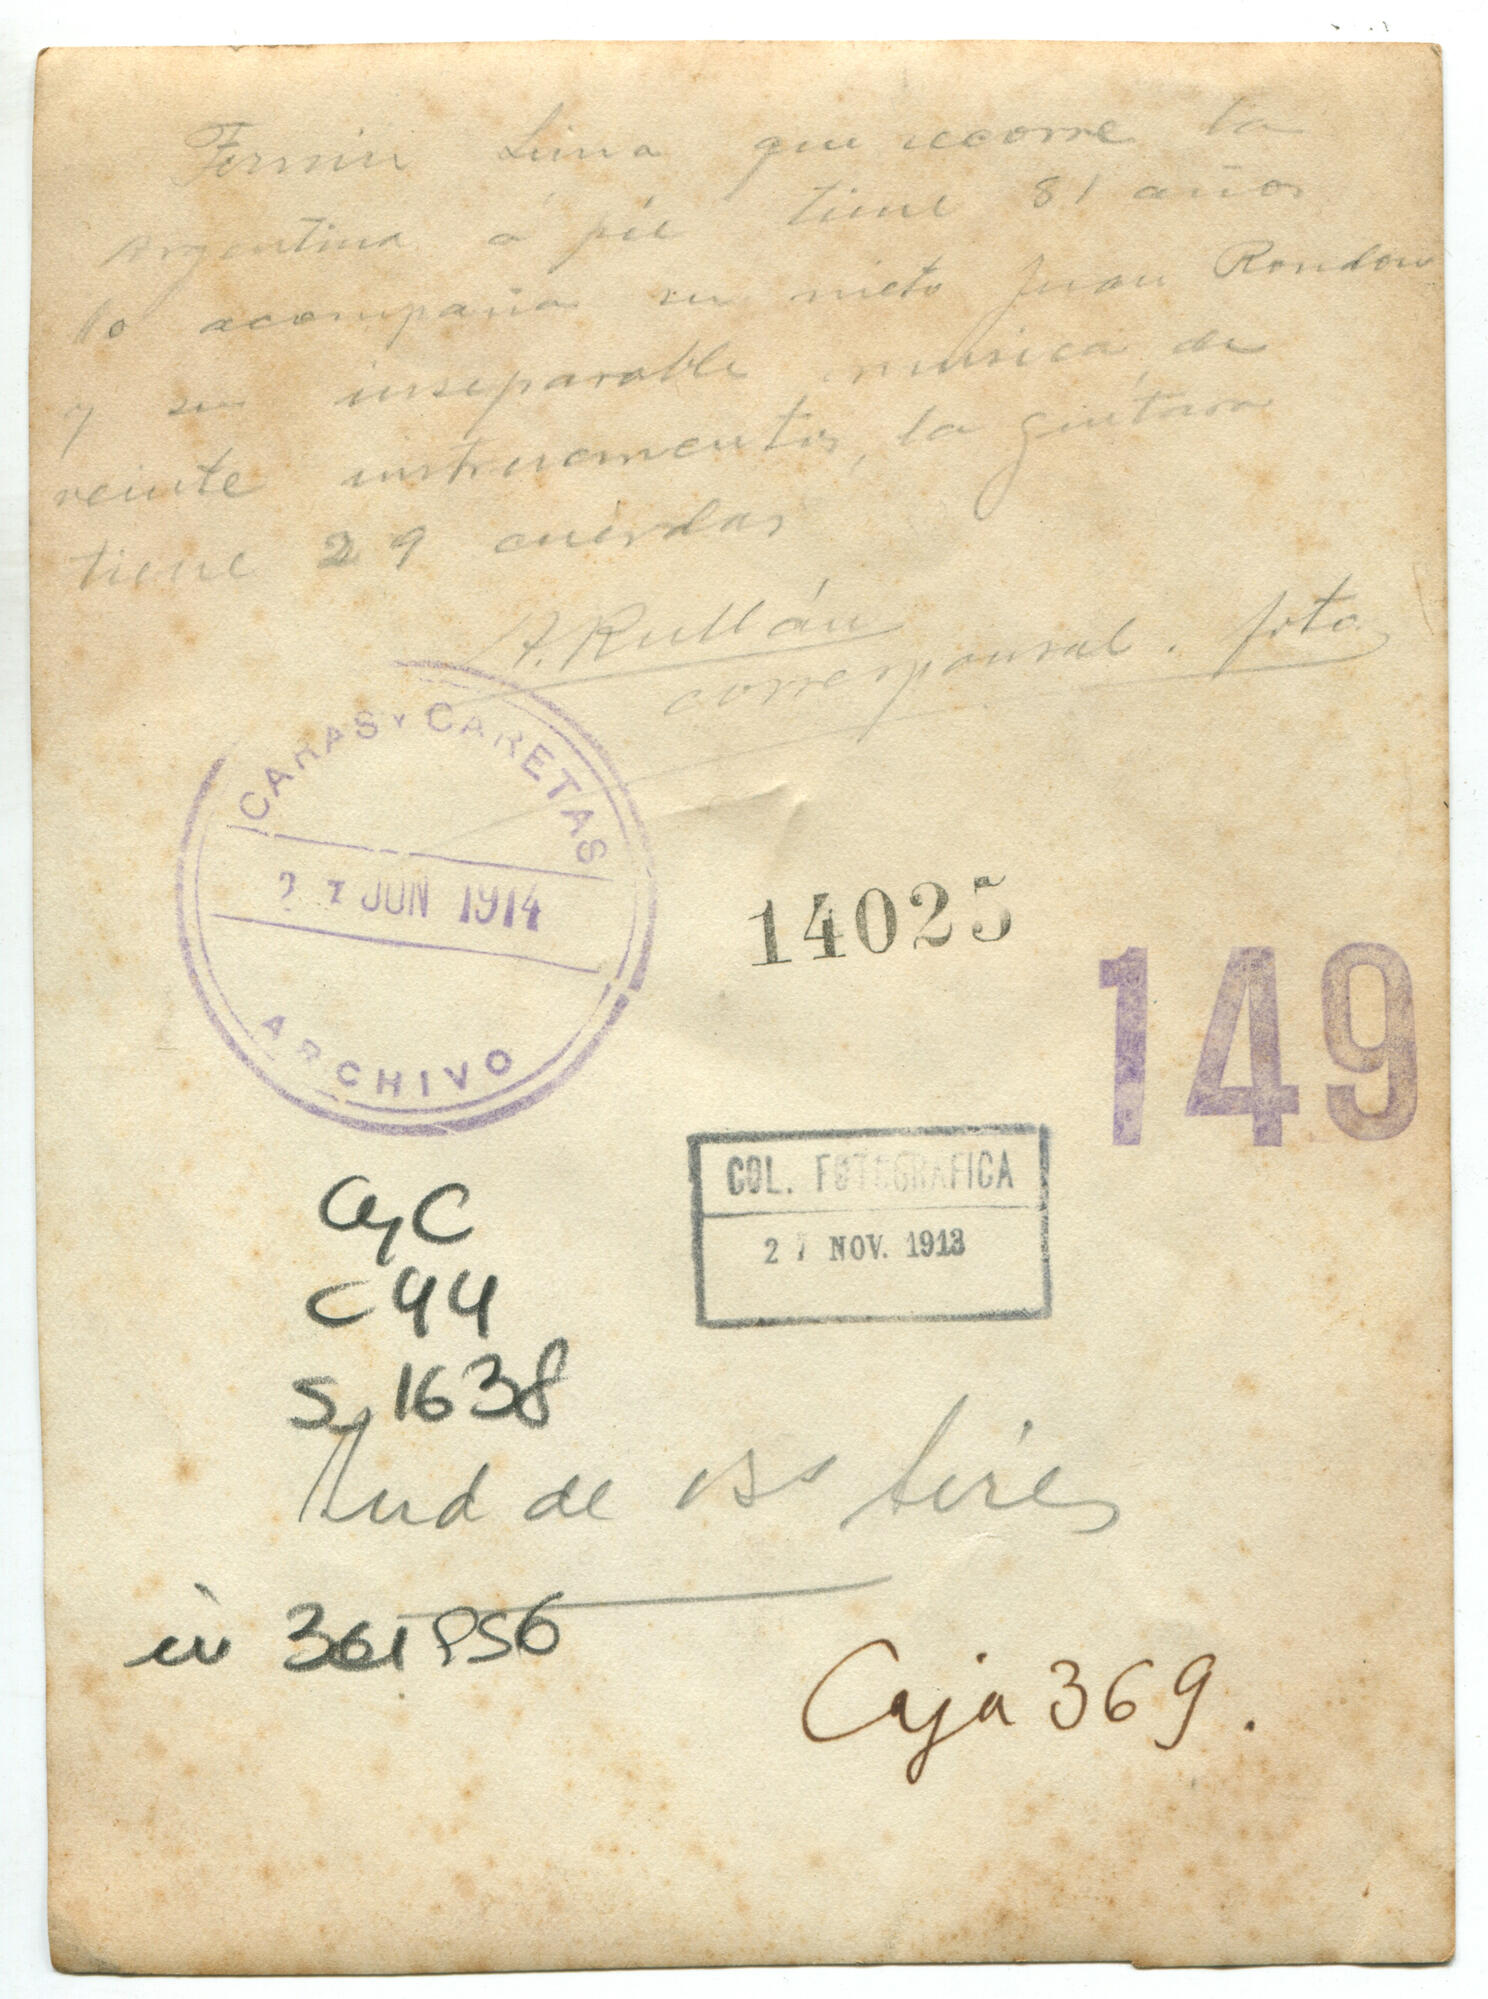 Fermin Luna que recorre la
Argentina á pié tiene 81 años
lo acompaña su nieto Juan Rondon
y su inseparable musica de
veinte instrumentos, la guitara
tiene 29 cuerdas
A. Rullán
corresponsal. foto
CARAS Y CARETAS
27 JUN 1914
ARCHIVO
14025
149
COL. FOTOGRAFICA
27 NOV. 1913
CyC
C44
S, 1638
Sud de Bs Aires
361 P56
Caja 369.